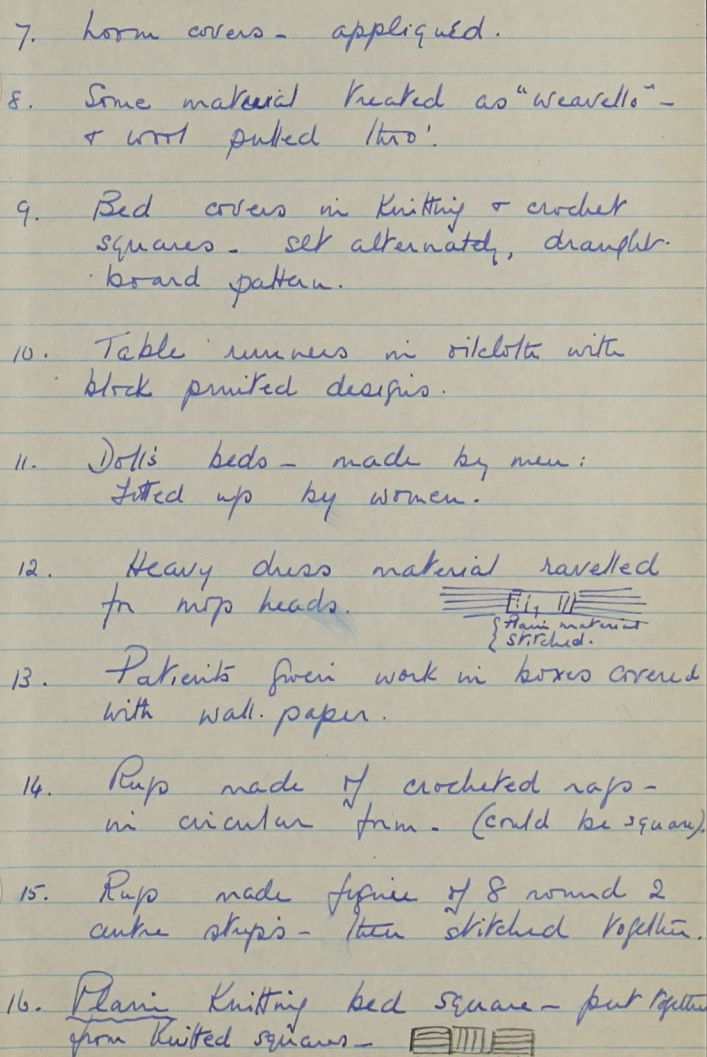 7. Loom covers - appliquéd.
8. Some material treated as "weavello" -
& wool pulled thro'.
9. Bed covers in Knitting & crochet
squares - set alternately, draught-
board pattern.
10. Table runners in oilcloth with
block printed designs.
11. Doll's beds - made by men:
fitted up by women.
12. Heavy dress material ravelled
for mop heads.
{ Plain material
{ stitched.
13. Patients given work in boxes covered
with wall-paper.
14. Rugs made of crocheted rags -
in circular form - (could be square).
15. Rugs made figure of 8 round 2
centre strips - then stitched together.
16. Plain Knitting bed square - put together
from Knitted squares -